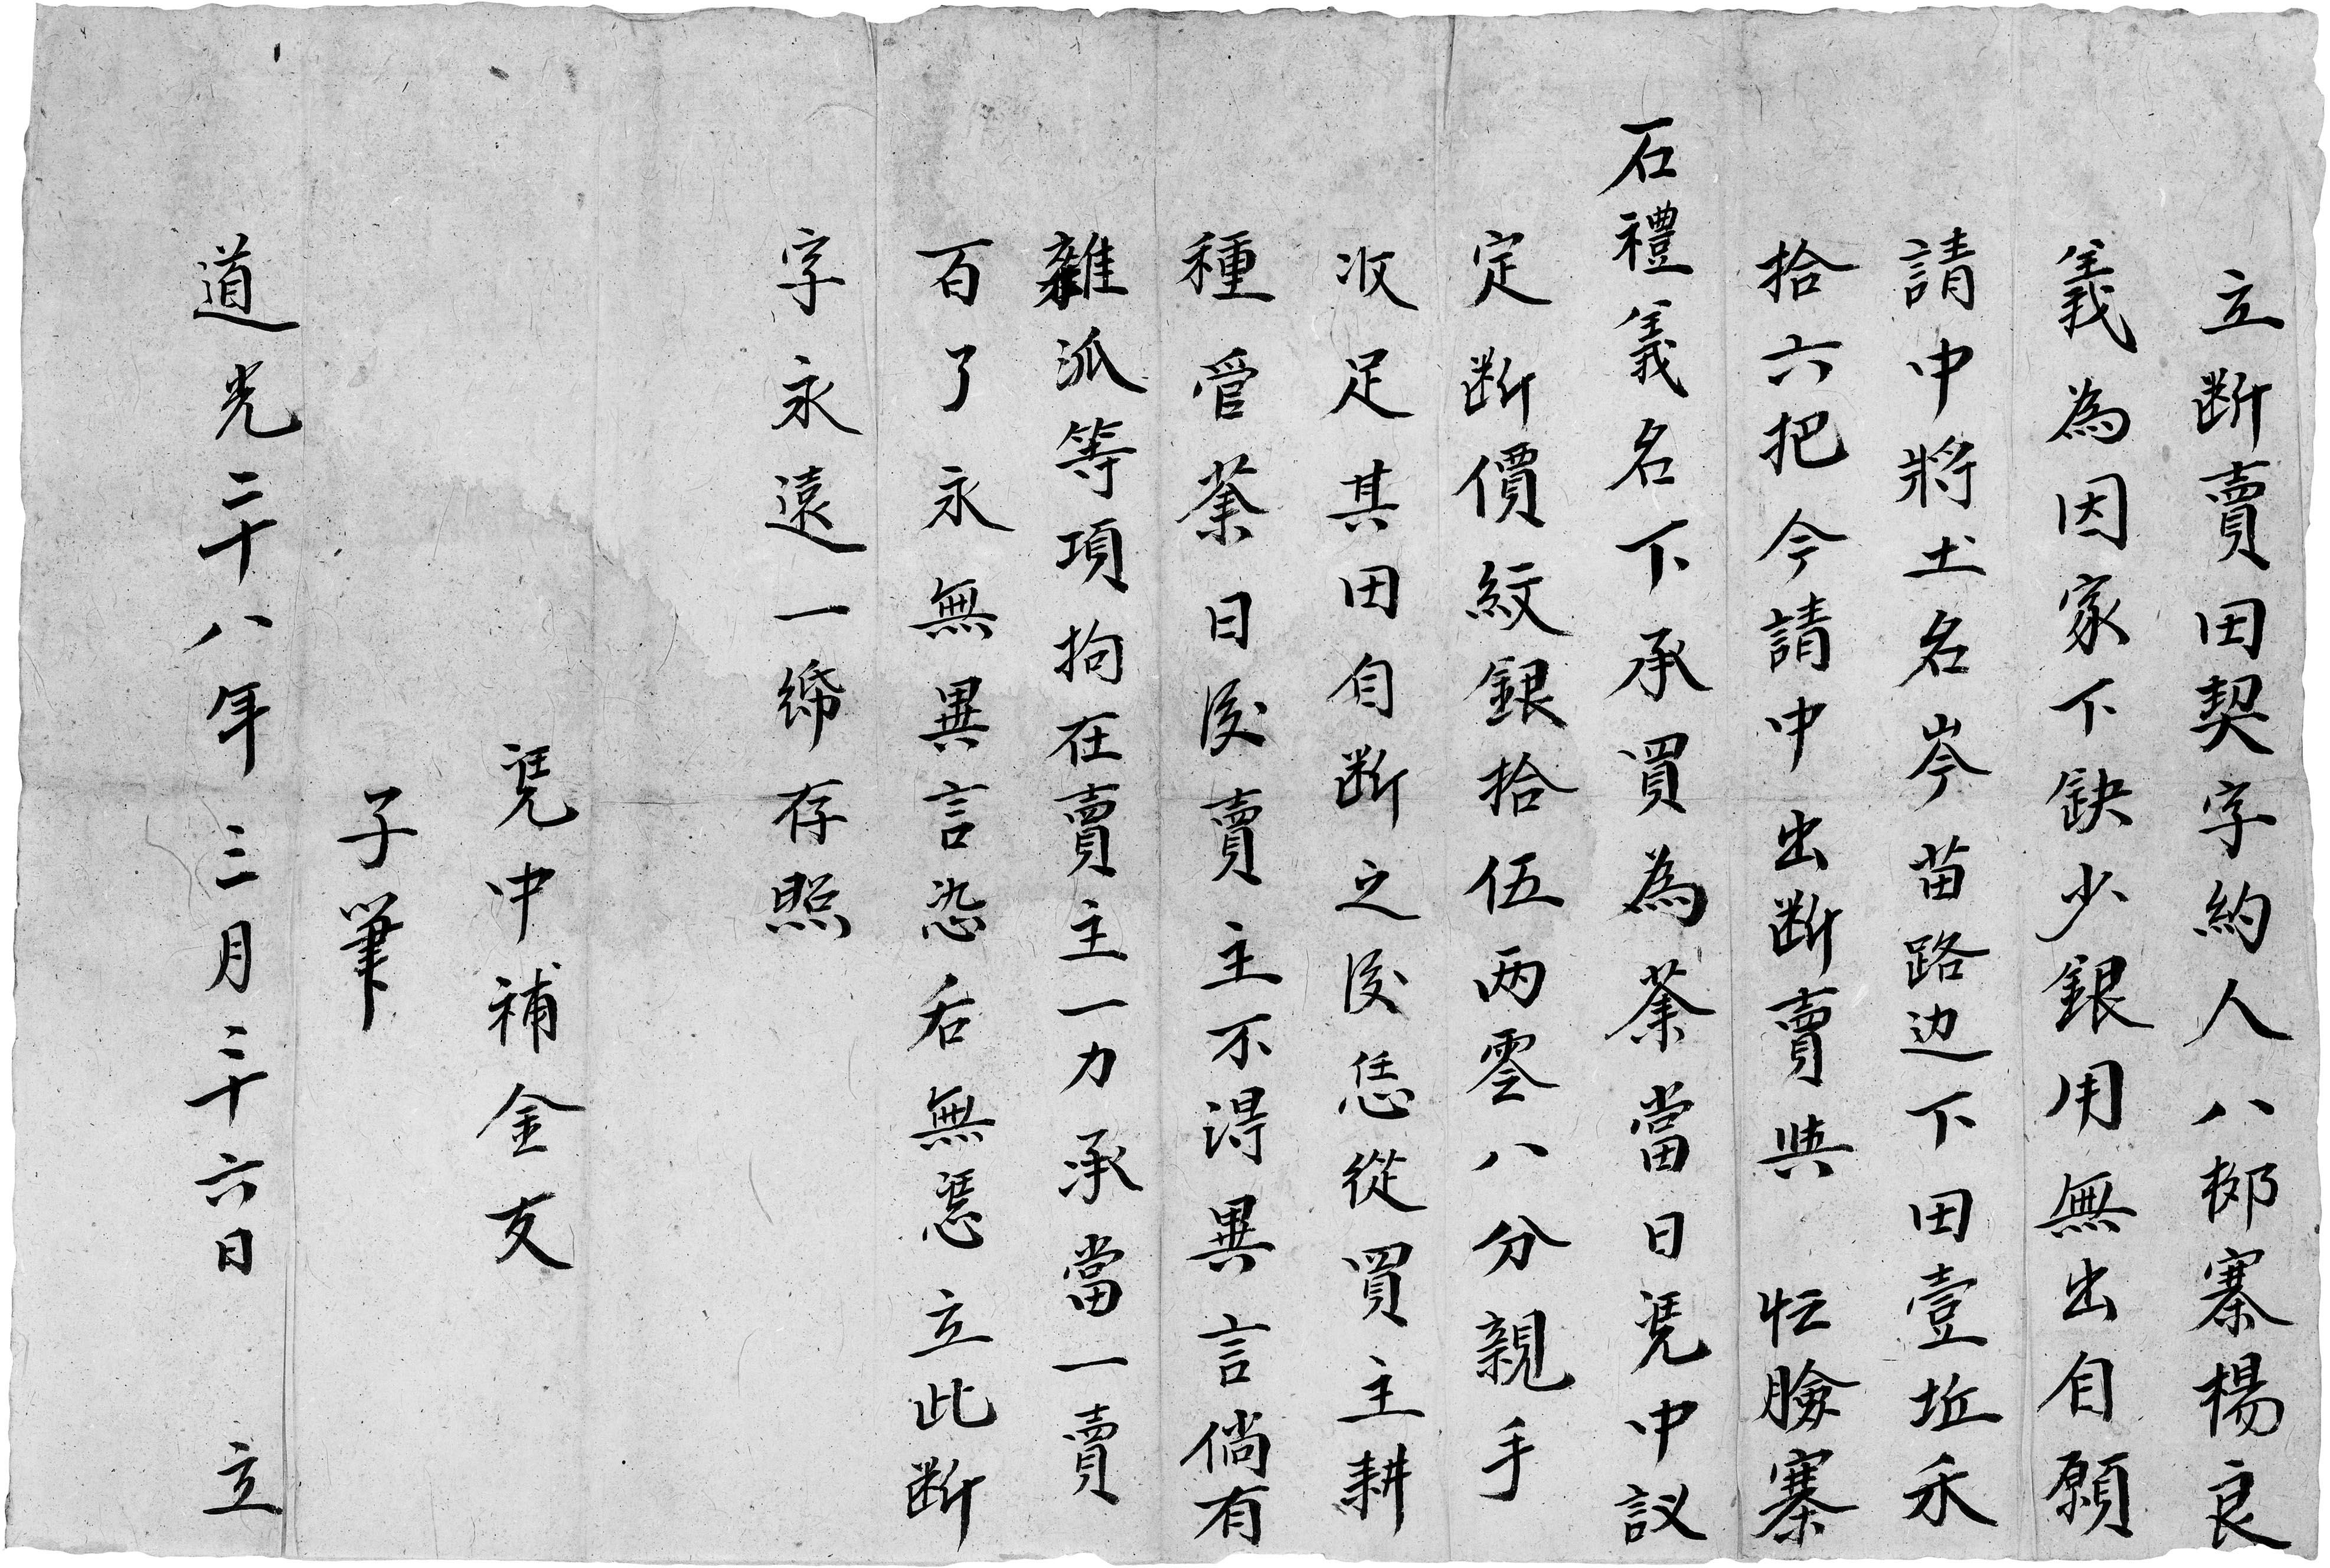 立断賣田契字約人八柳寨楊良
義為因家下缺少銀用無出自願
請中將土名岑苗路边下田壹坵禾
拾六把今請中出断賣與 怔臉寨
石禮義名下承買為業當日凴中议
定断價紋銀拾伍两零八分親手
收足其田自断之後恁從買主耕
種管業日後賣主不得異言倘有
雜派等項拘在賣主一力承當一賣
百了永無異言恐后無慿立此断
字永遠一帋存照
凴中補金友
子筆
道光二十八年三月二十六日 立